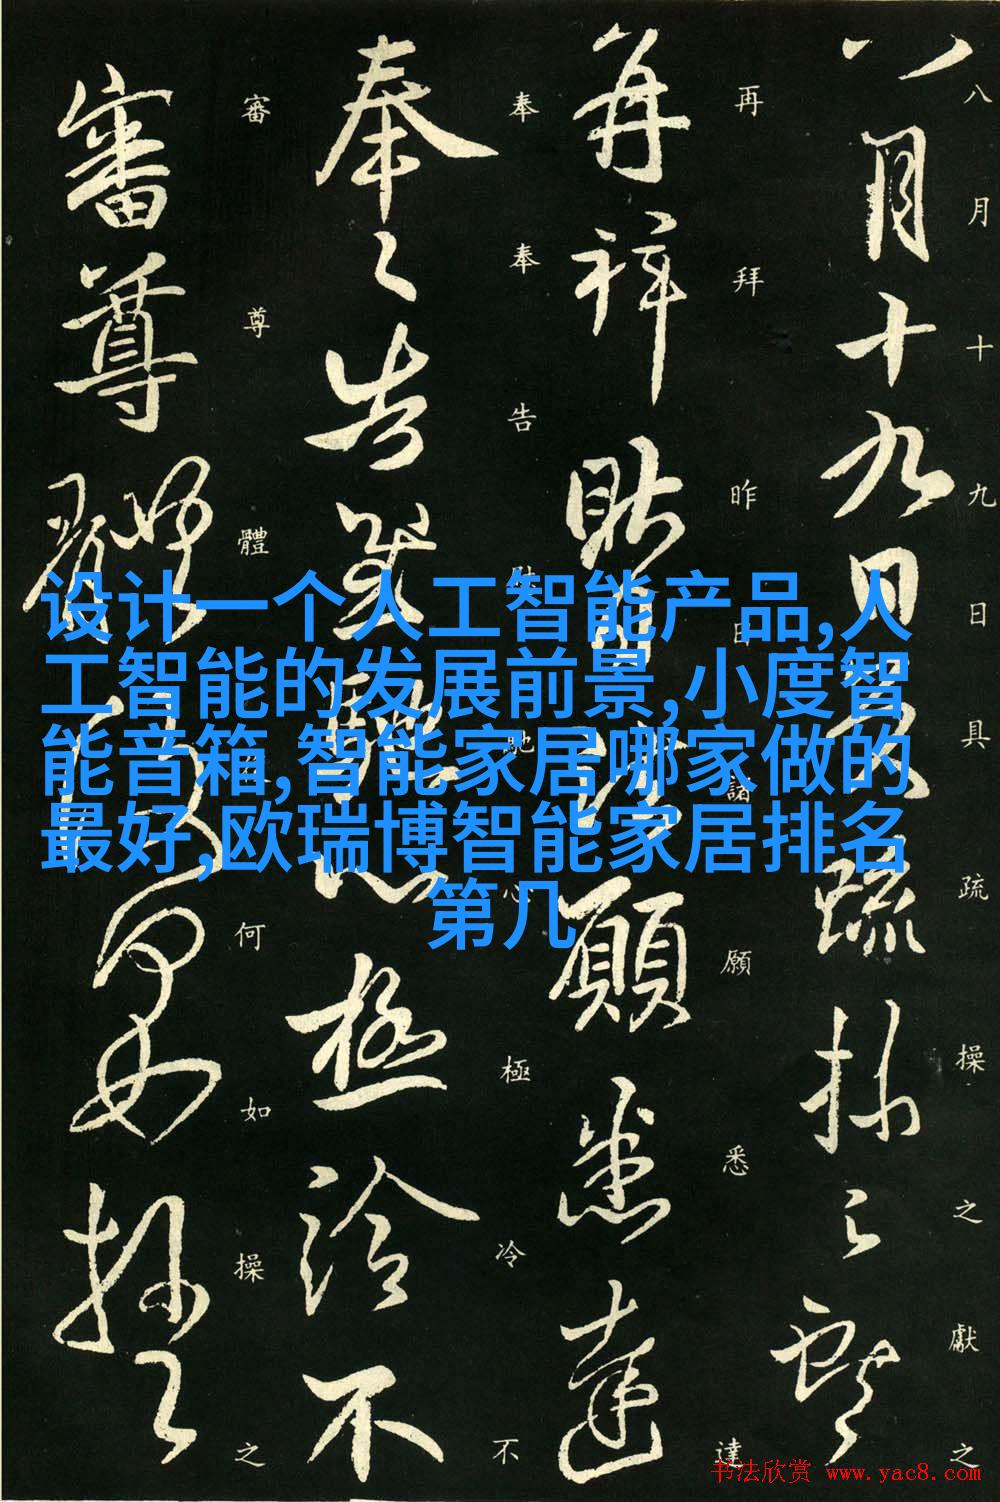 八月十九日具疏操之獻之
八月十九日具疏操之獻之
再拜昨日諸願悉達
再拜昨日諸願悉達
奉奉告慰馳心極冷不
奉奉告慰馳心極冷不
審尊體何如操之
審尊體何如操之
设计一个人工智能产品,人
工智能的发展前景,小度智
能音箱,智能家居哪家做的
最好,欧瑞博智能家居排名
第几
书法欣赏 www.yac8.com